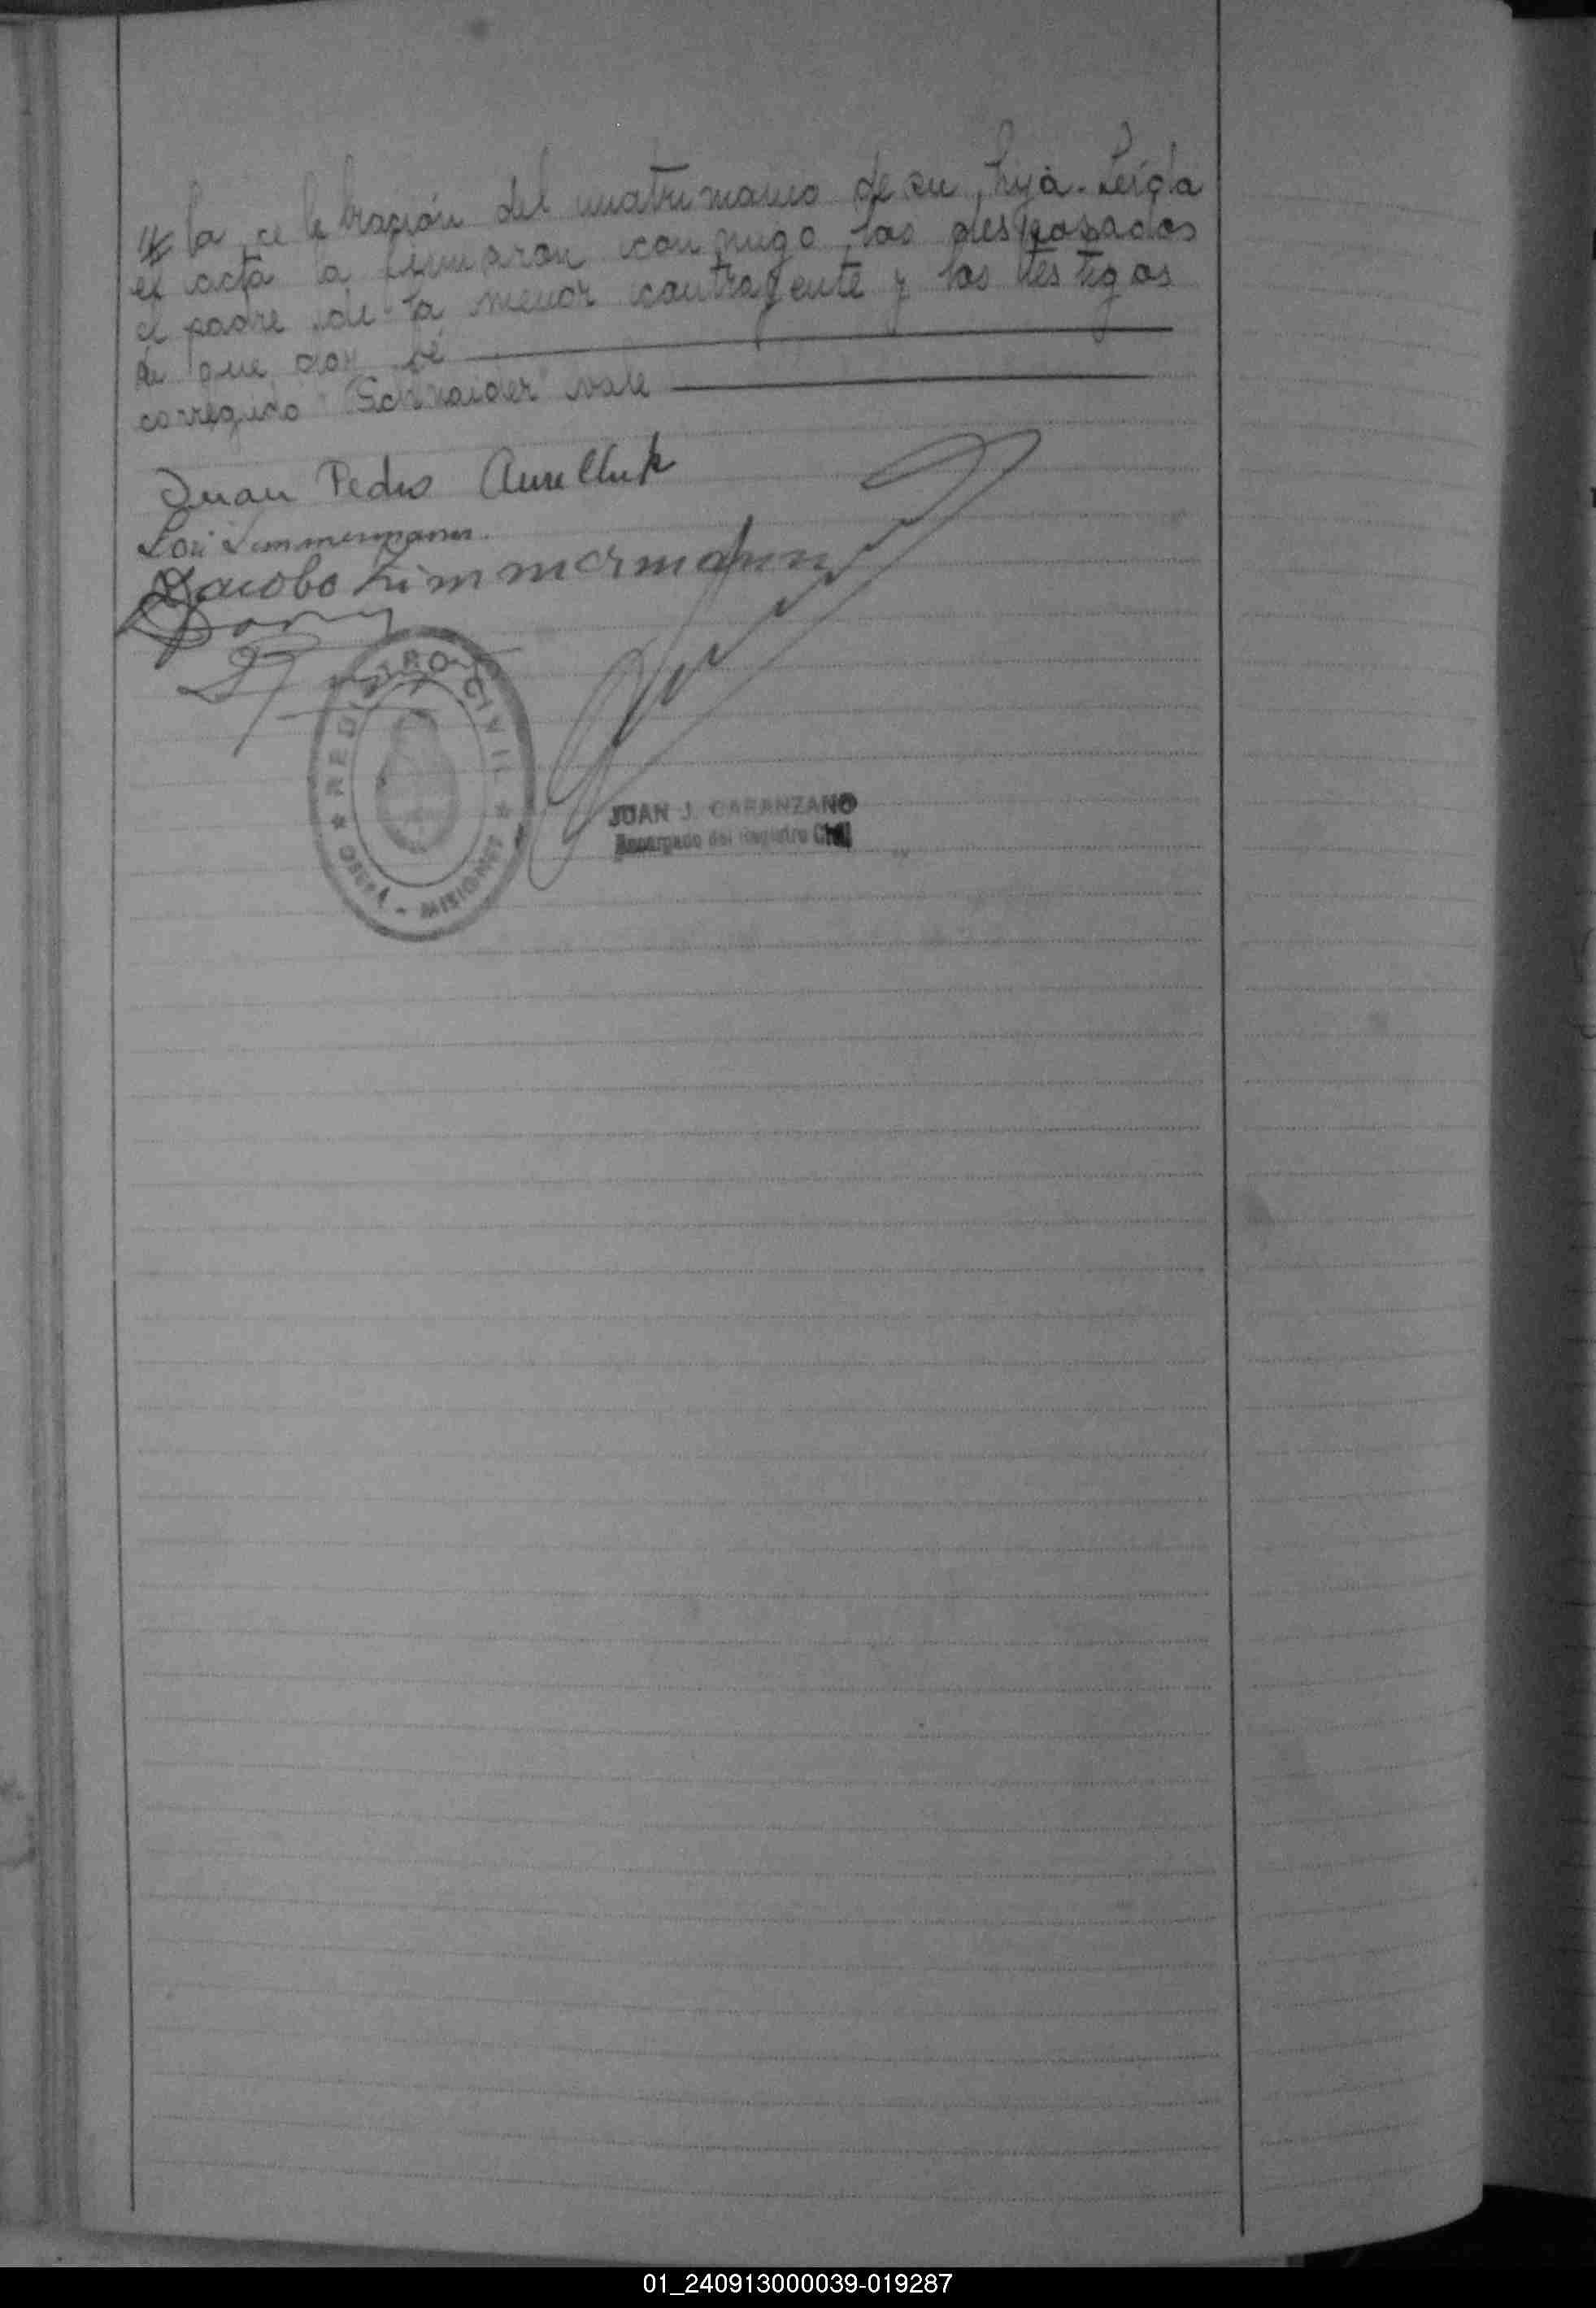 la celebración del matrimonio de su hija. Leída
el acta la firmaron conmigo los desposados
el padre de la menor contrayente y los testigos
de que doy fé
corregido "Schnaider" vale
Juan Pedro
Lori Zimmermann.
Jacobo Zimmermann
REGISTRO CIVIL
OBERÁ - MISIONES
JUAN J. GARANZANO
Encargado del Registro Civil
01_240913000039-019287